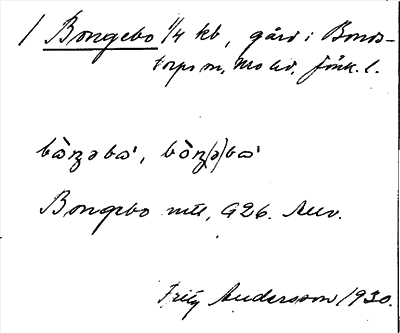 / Bongebo 1/4 kb, gård i Bonds-
torps sn, Mo hd. Jönk. l.
bòŋəbω', bòŋ(ə)bω'
Bongebo mtl, G26.
Fritz Andersson 1930.